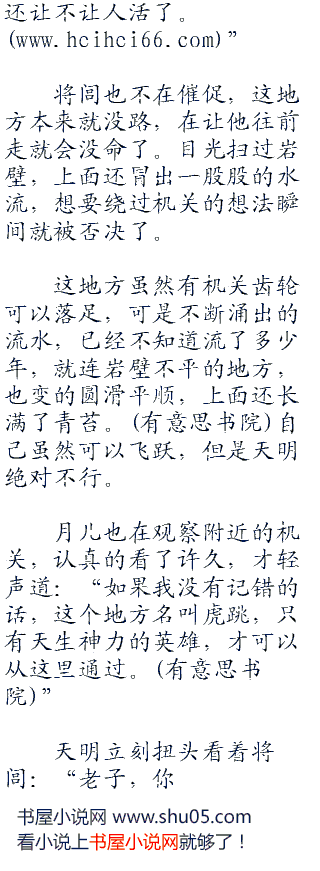 还让不让人活了。
(www.hcihci66.com)”
将闾也不在催促，这地
方本来就没路，在让他往前
走就会没命了。目光扫过岩
壁，上面还冒出一股股的水
流，想要绕过机关的想法瞬
间就被否决了。
这地方虽然有机关齿轮
可以落足，可是不断涌出的
流水，已经不知道流了多少
年，就连岩壁不平的地方，
也变的圆滑平顺，上面还长
满了青苔。(有意思书院)自
己虽然可以飞跃，但是天明
绝对不行。
月儿也在观察附近的机
关，认真的看了许久，才轻
声道：“如果我没有记错的
话，这个地方名叫虎跳，只
有天生神力的英雄，才可以
从这里通过。(有意思书
院)”
天明立刻扭头看着将
闾：“老子，你
书屋小说网 www.shu05.com
看小说上书屋小说网就够了！